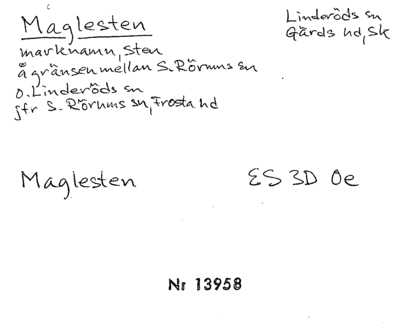 Maglesten
Linderöds sn
Gärds hd, Sk
marknamn, sten
å gränsen mellan S. Rörums sn
o. Linderöds sn
jfr S. Rörums sn, Frosta hd
Maglesten
ES 3D 0e
Nr 13958